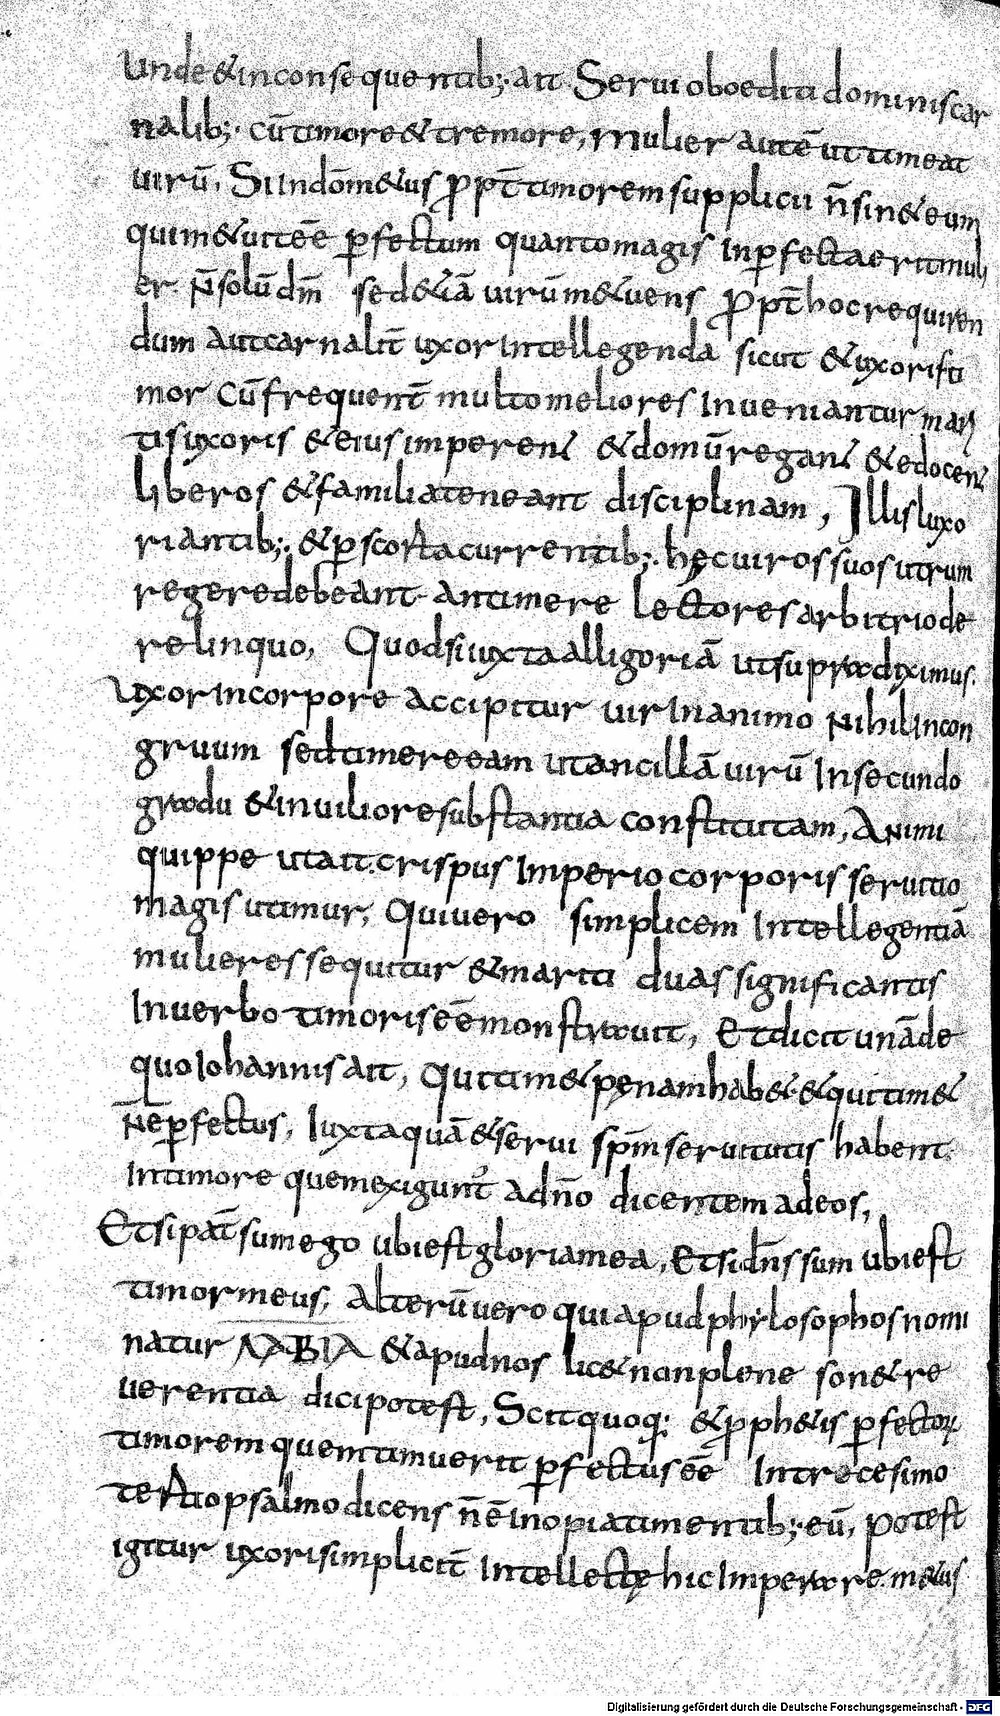 Unde & inconsequentib;· ait· Serui oboediti dominis car
nalib;· cū timore & tremore, Mulier autē ut timeat
uirū, Si in dōm &us ꝓpt̄ timorem supplicii n̄ sin& eum
qui m&uit eē ꝑfectum quanto magis inꝑfecta erit muli
er· N̄ solū dm̄ sed &iā uirū m&uens Ꝓpt̄ hoc requiren
dum aut carnalit̄ uxor intellegenda sicut & uxoris ti
mor Cū frequent̄ multo meliores inueniantur mari
tis uxoris & eius imperent & domū regant & edocent
liberos & familia teneant disciplinam, Illis luxo
riantib;· & ꝑ scorta currentib;· hęc uiros suos utrum
regere debeant· an timere lectores arbitrio de
relinquo, Quod si iuxta alligoriā ut supra diximus·
Uxor in corpore accipitur uir in animo Nihil incon
gruum sed timere eam ut ancillā uirū in secundo
gradu & in uiliore substantia constitutam, Animi
quippe ut ait· crispus imperio corporis seruitio
magis utimur, Qui uero simplicem intellegentiā
mulieres sequitur & mariti duas significantis
In uerbo timoris eē monstrauit, Et dicit unā de
quo Iohannis ait, Qui tim& pęnam hab&· & qui tim&
N̄ ꝑfectus, Iuxta quā & serui spm̄ seruitutis habent·
In timore quem exigunt̄ ad n̄o dicentem ad eos,
Et si pat̄ sum ego ubi est gloria mea, Et si dn̄s sum ubi est
timor meus, Alterū uero qui apud phylosophos nomi
natur ΛΑΒΙΑ & apud nos lic& non plene son& re
uerentia dici potest, Scit quoq: & ꝓph&is ꝑfectoꝝ
timorem quem timuerit ꝑfectus eē In trecesimo
tertio psalmo dicens n̄ ē inopia timentib;· eū, Potest
igitur uxoris implicit̄ intellectę hic imperare· m&us
Digitalisierung gefördert durch die Deutsche Forschungsgemeinschaft - DFG